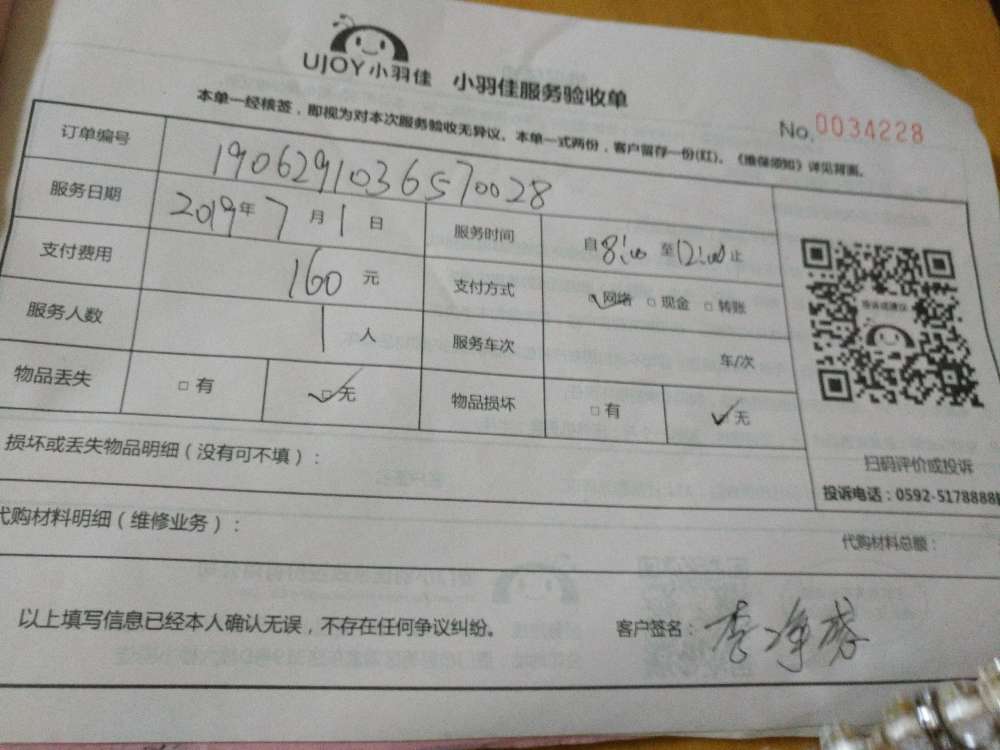 UJOY小羽佳 小羽佳服务验收单
No.0034228
本单一经核签，即视为对本次服务验收无异议。本单一式两份，客户留存一份(红)。《维保须知》详见背面。
订单编号 1906291036570028
服务日期 2019年7月1日 服务时间 自8:00至12:00止
支付费用 160元 支付方式 ☑网络 □现金 □转账
服务人数 1人 服务车次 车/次
物品丢失 □有 ☑无 物品损坏 □有 ☑无
扫码评价或投诉
投诉电话：0592-5178888
损坏或丢失物品明细（没有可不填）：
代购材料明细（维修业务）：
代购材料总额：
以上填写信息已经本人确认无误，不存在任何争议纠纷。 客户签名：李